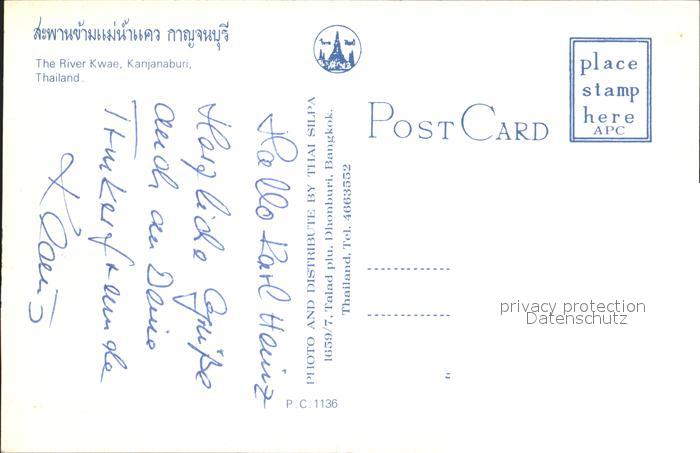 สะพานข้ามแม่น้ำแคว กาญจนบุรี
The River Kwae, Kanjanaburi,
Thailand.
Hallo Karl Heinz
Herzliche Grüße
auch an Deine
Funkerfreunde
PHOTO AND DISTRIBUTE BY THAI SILPA
1659/7, Talad plu, Dhonburi, Bangkok.
Thailand, Tel. 4663552
P.C.1136
POST CARD
place
stamp
here
APC
privacy protection
Datenschutz